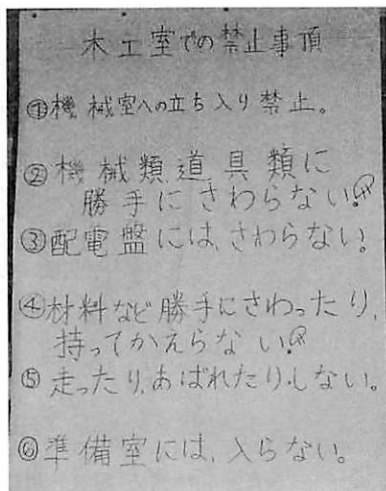 木工室での禁止事項
①機械室への立ち入り禁止。
②機械類道具類に
勝手にさわらない。
③配電盤には、さわらない。
④材料など勝手にさわったり、
持ってかえらない。
⑤走ったり、あばれたりしない。
⑥準備室には、入らない。